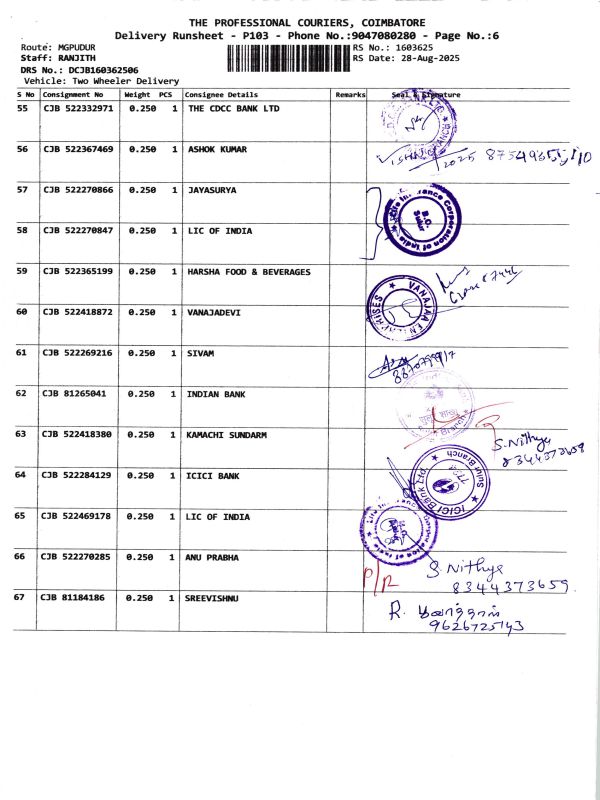 THE PROFESSIONAL COURIERS, COIMBATORE
Delivery Runsheet - P103 - Phone No.:9047080280 - Page No.:6
Route: MGPUDUR
RS No.: 1603625
Staff: RANJITH
RS Date: 28-Aug-2025
DRS No.: DCJB160362506
Vehicle: Two Wheeler Delivery
S No Consignment No Weight PCS Consignee Details Remarks Seal & Signature
55 CJB 522332971 0.250 1 THE CDCC BANK LTD
56 CJB 522367469 0.250 1 ASHOK KUMAR
57 CJB 522270866 0.250 1 JAYASURYA
58 CJB 522270847 0.250 1 LIC OF INDIA
Life Insurance Corporation of India
B.O.
Sulur
59 CJB 522365199 0.250 1 HARSHA FOOD & BEVERAGES
60 CJB 522418872 0.250 1 VANAJADEVI
VANAJAA ENTERPRISES
61 CJB 522269216 0.250 1 SIVAM
62 CJB 81265041 0.250 1 INDIAN BANK
Branch
63 CJB 522418380 0.250 1 KAMACHI SUNDARM
S. Nithya
8344373659
64 CJB 522284129 0.250 1 ICICI BANK
ICICI Bank Ltd.
Sulur Branch
65 CJB 522469178 0.250 1 LIC OF INDIA
66 CJB 522270285 0.250 1 ANU PRABHA
P/R
S. Nithya
8344373659
67 CJB 81184186 0.250 1 SREEVISHNU
R.
9626725143